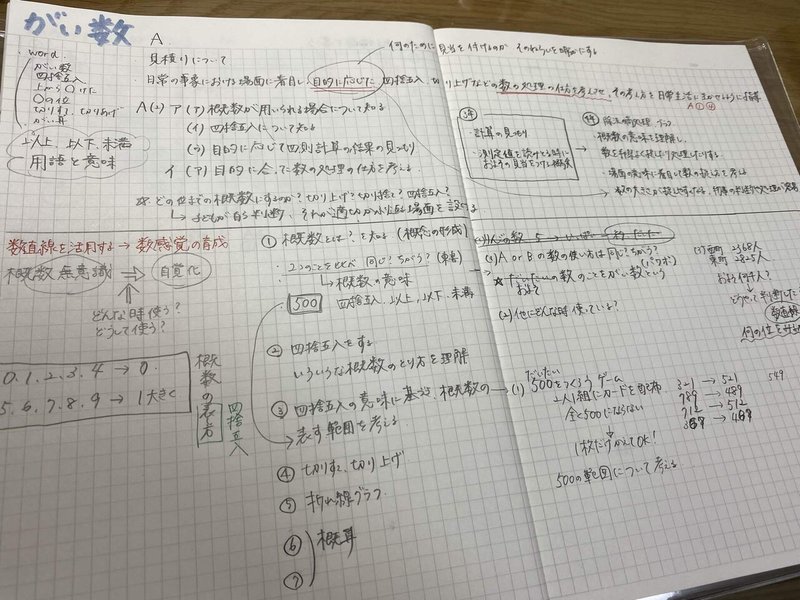 がい数
word
がい数
四捨五入
上から〇けた
〇の位
切りすて、切りあげ
がい算
以上、以下、未満
用語と意味
A.
見積りについて
何のために見当を付けるのか そのねらいを明かにする
日常の事象における場面に着目し、目的に応じた四捨五入、切り上げなどの数の処理の仕方を考え
その考え方を日常生活に生かせるように指導
A(2) ア (ア) 概数が用いられる場合について知る
(イ) 四捨五入について知る
(ウ) 目的に応じて四則計算の結果の見積り
イ (ア) 目的に合って数の処理の仕方を考える
☆ どの位までの概数にするのか?切り上げ?切り捨て?四捨五入?
↳子どもが自ら判断
場面を設ける
3年
・計算の見積り
・測定値を読みとる時に
およその見当をつける
4年
概数の意味を理解し、
場面の意味に着目して数の
数直線を活用する→数感覚の育成
概数 無意識 ⇒ 自覚化
どんな時使う?
どうして使う?
0.1.2.3.4 → 0.
5.6.7.8.9 → 1大きく
概数の表し方
四捨五入
① 概数とは?を知る(概念の形成)
・2つのことを比べ 同じ?ちがう?
↳概数の意味
・500 四捨五入、以上、以下、未満
② 四捨五入をする
いろいろな概数のとり方を理解
③ 四捨五入の意味に基づき、概数の
表す範囲を考える
④ 切りすて、切り上げ
⑤ 折れ線グラフ
⑥ 概算
⑦
(1) A or Bの数の使い方は同じ?ちがう?
(パワポ)
☆ だいたいの数のことをがい数という
およそ
(2) 他にどんな時使っている?
(3) 西町 2368人
東町 2825人
およそ何千人?
数直線
何の位を
だいたい
(1) 500をつくろうゲーム
2人1組にカードを配布
全く500にならない
1枚だけかえてOK!
500の範囲について考える
321 → 521
789 → 489
712 → 512
549